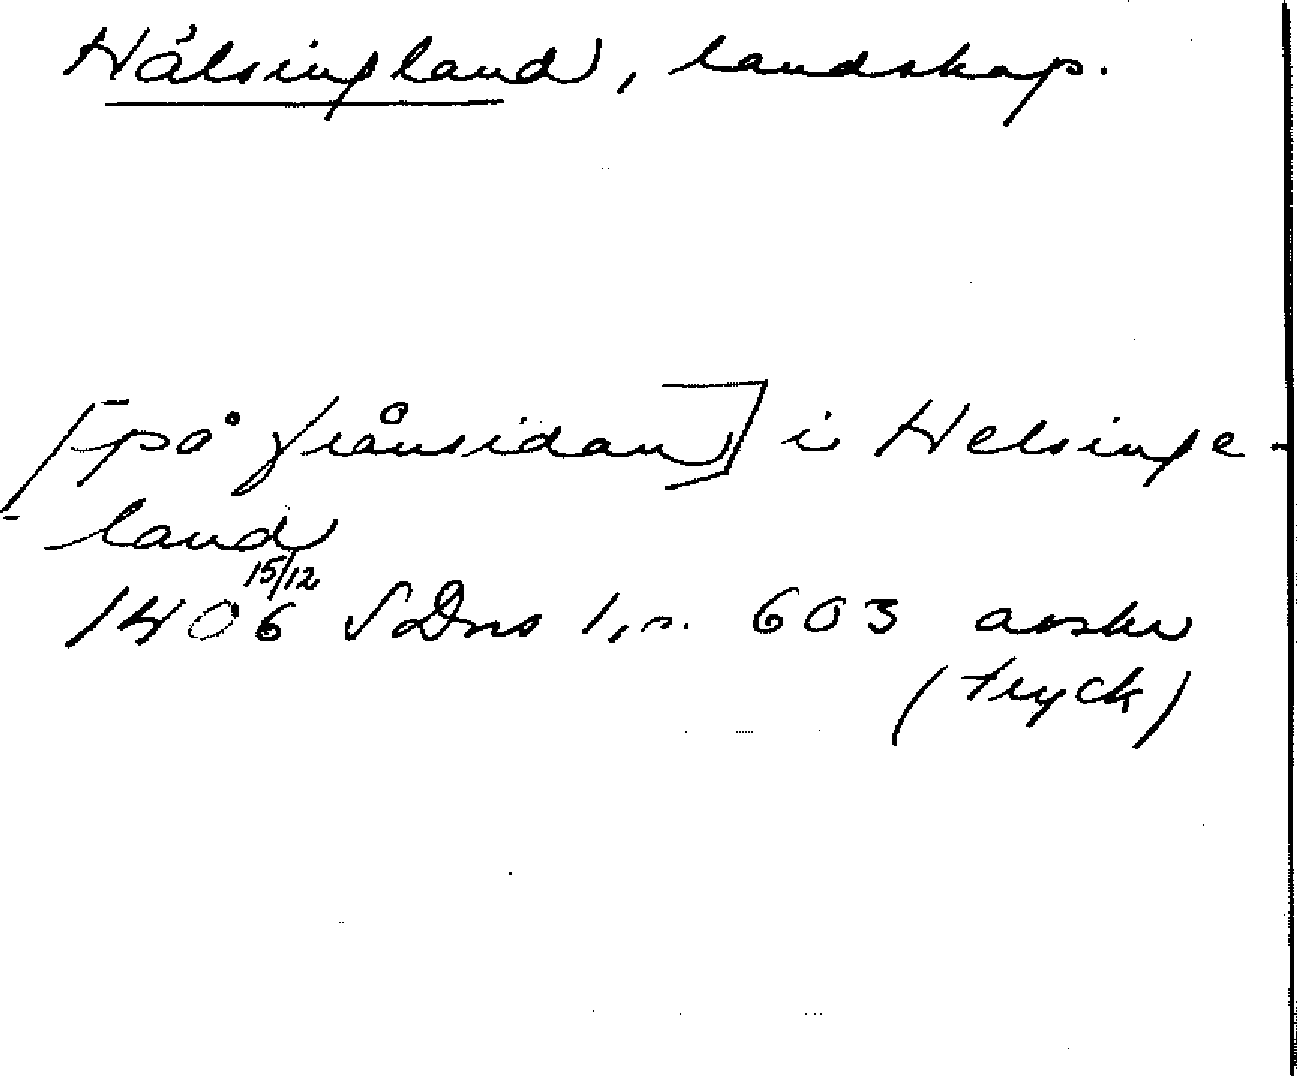 Hälsingland, landskap.
[på frånsidan] i Helsinge-
land
15/12
1406 SDns 1, s. 603 avskr
(tryck)